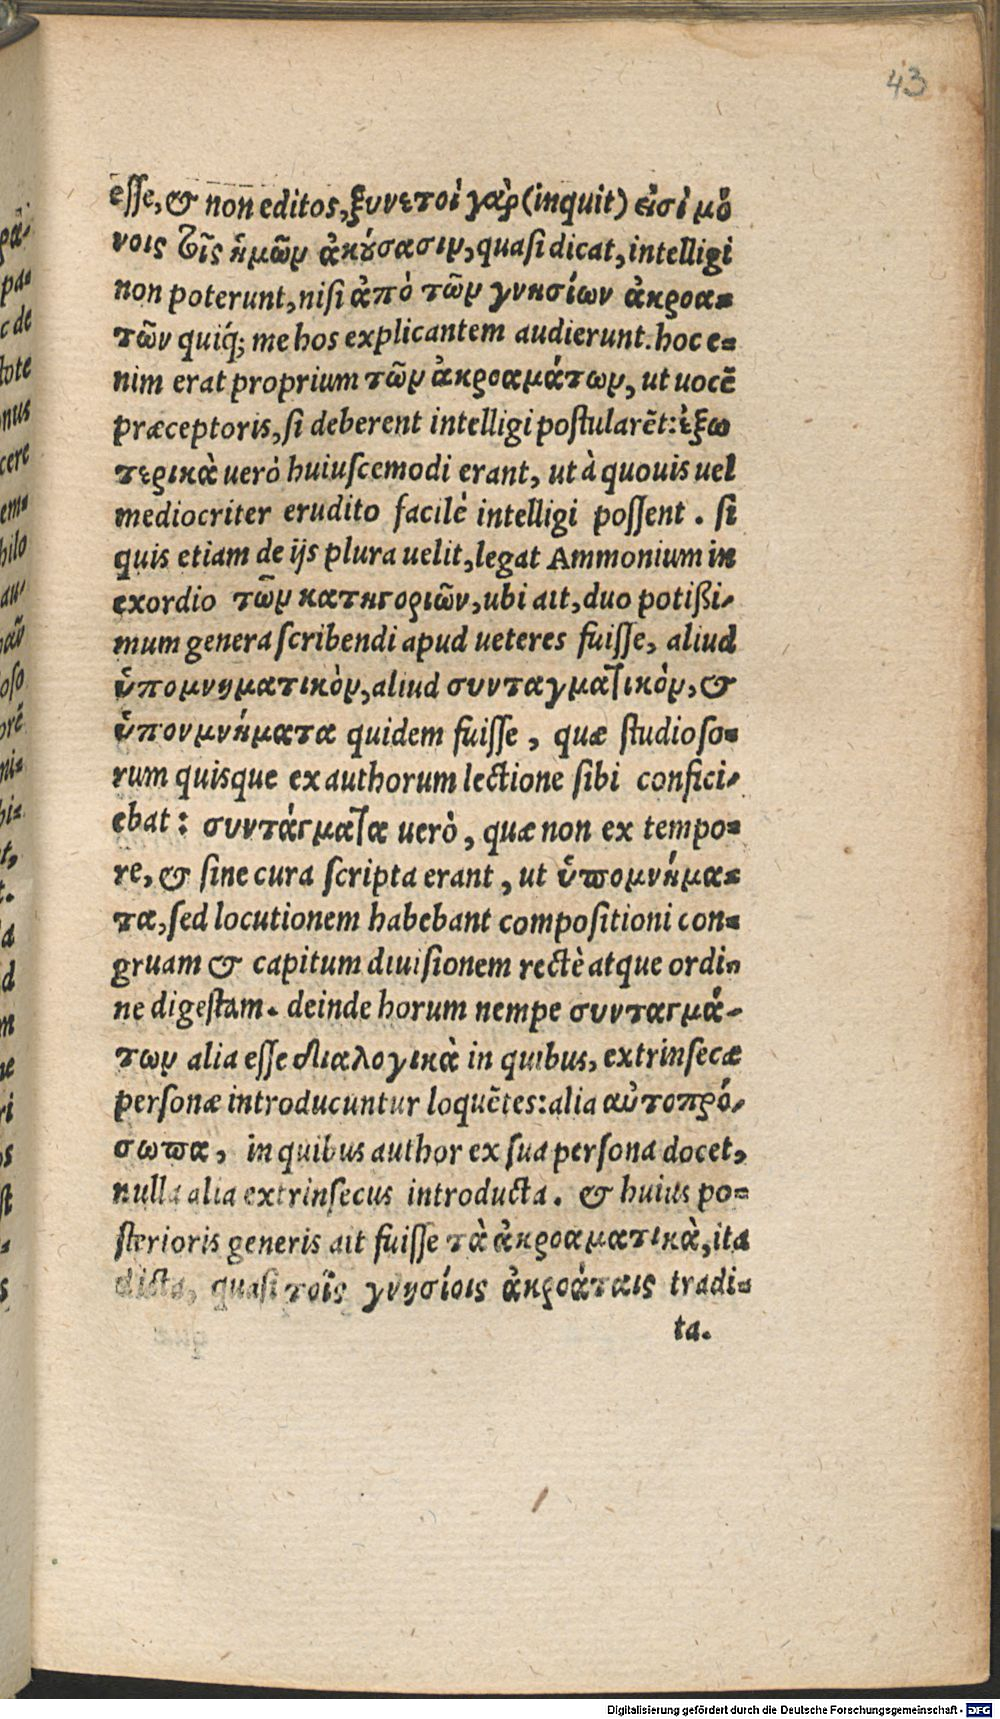 43
esse, & non editos, ξυνετοί γὰρ (inquit) εἰσὶ μό
νοις τοῖς ἡμῶν ἀκούσασιν, quasi dicat, intelligi
non poterunt, nisi ἀπὸ τῶν γνησίων ἀκροα=
τῶν quiq́; me hos explicantem audierunt. hoc e=
nim erat proprium τῶν ἀκροαμάτων, ut uocē
præceptoris, si deberent intelligi postularēt: ἐξω
τερικὰ uerò huiuscemodi erant, ut à quouis uel
mediocriter erudito facilè intelligi possent. si
quis etiam de ijs plura uelit, legat Ammonium in
exordio τῶν κατηγοριῶν, ubi ait, duo potißi-
mum genera scribendi apud ueteres fuisse, aliud
ὑπομνηματικὸν, aliud συνταγματικὸν, &
ὑπονμνήματα quidem fuisse, quæ studioso=
rum quisque ex authorum lectione sibi confici-
ebat: συντάγματα uerò, quæ non ex tempo=
re, & sine cura scripta erant, ut ὑπομνήμα=
τα, sed locutionem habebant compositioni con=
gruam & capitum diuisionem rectè atque ordi-
ne digestam. deinde horum nempe συνταγμά-
των alia esse διαλογικὰ in quibus, extrinsecæ
personæ introducuntur loquētes: alia αὐτοπρό-
σωπα, in quibus author ex sua persona docet,
nulla alia extrinsecus introducta. & huius po=
sterioris generis ait fuisse τὰ ἀκροαματικὰ, ita
dicta, quasi τοῖς γνησίοις ἀκροάταις tradi=
ta.
Digitalisierung gefördert durch die Deutsche Forschungsgemeinschaft - DFG